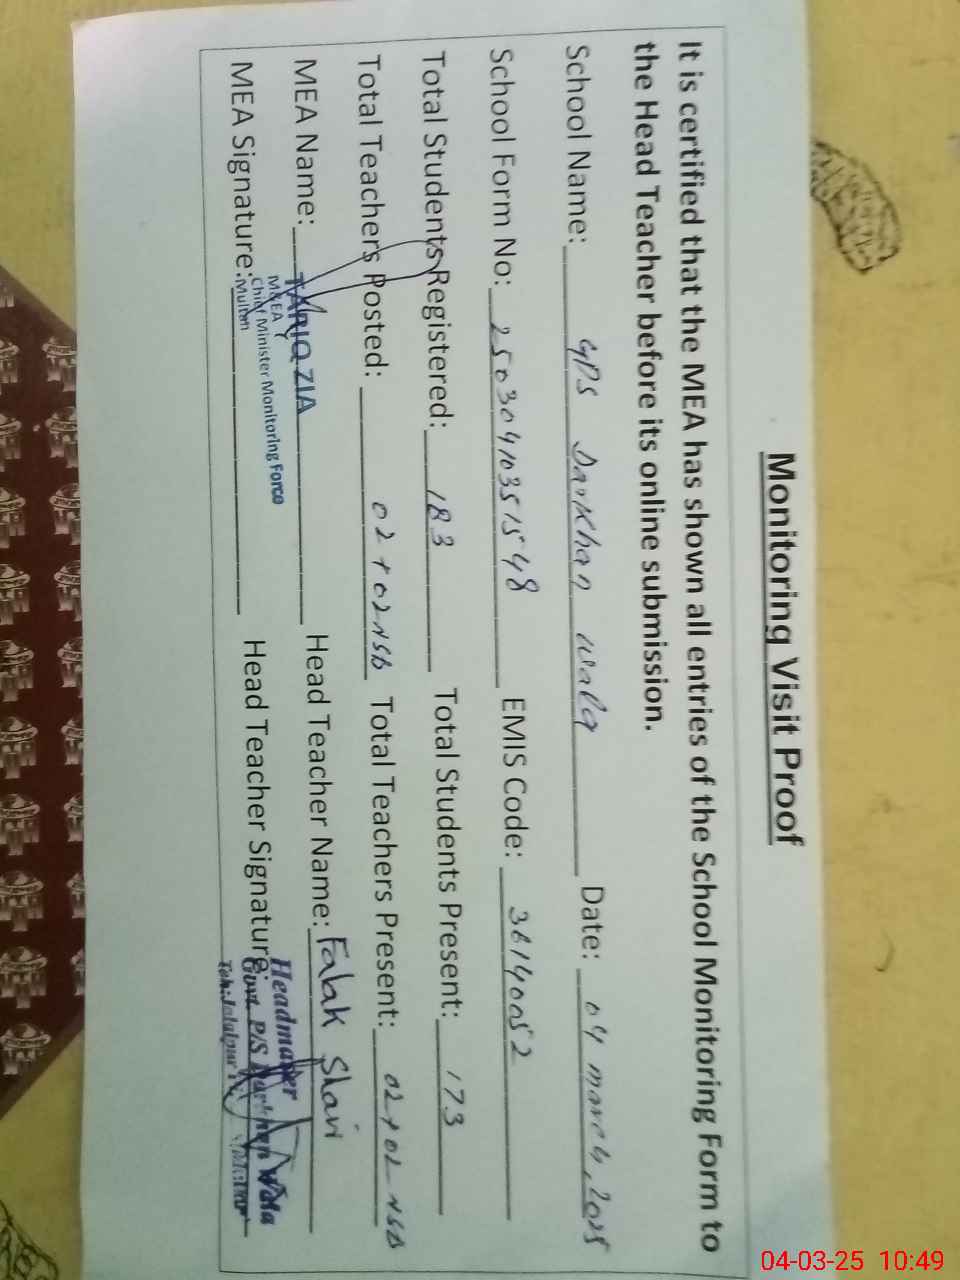 Monitoring Visit Proof
It is certified that the MEA has shown all entries of the School Monitoring Form to
the Head Teacher before its online submission.
School Name: GPS Darkhan wala Date: 04 march, 2025
School Form No: 25030410351548 EMIS Code: 36140052
Total Students Registered: 183 Total Students Present: 173
Total Teachers Posted: 02+02NSB Total Teachers Present: 02+02-NSB
MEA Name: TARIQ ZIA Head Teacher Name: Falak Shair
M&EA
Chief Minister Monitoring Force
Multan
MEA Signature: Head Teacher Signature:
Headmaster
Govt. P/S Darkhan Wala
Teh: Jalalpur
04-03-25 10:49